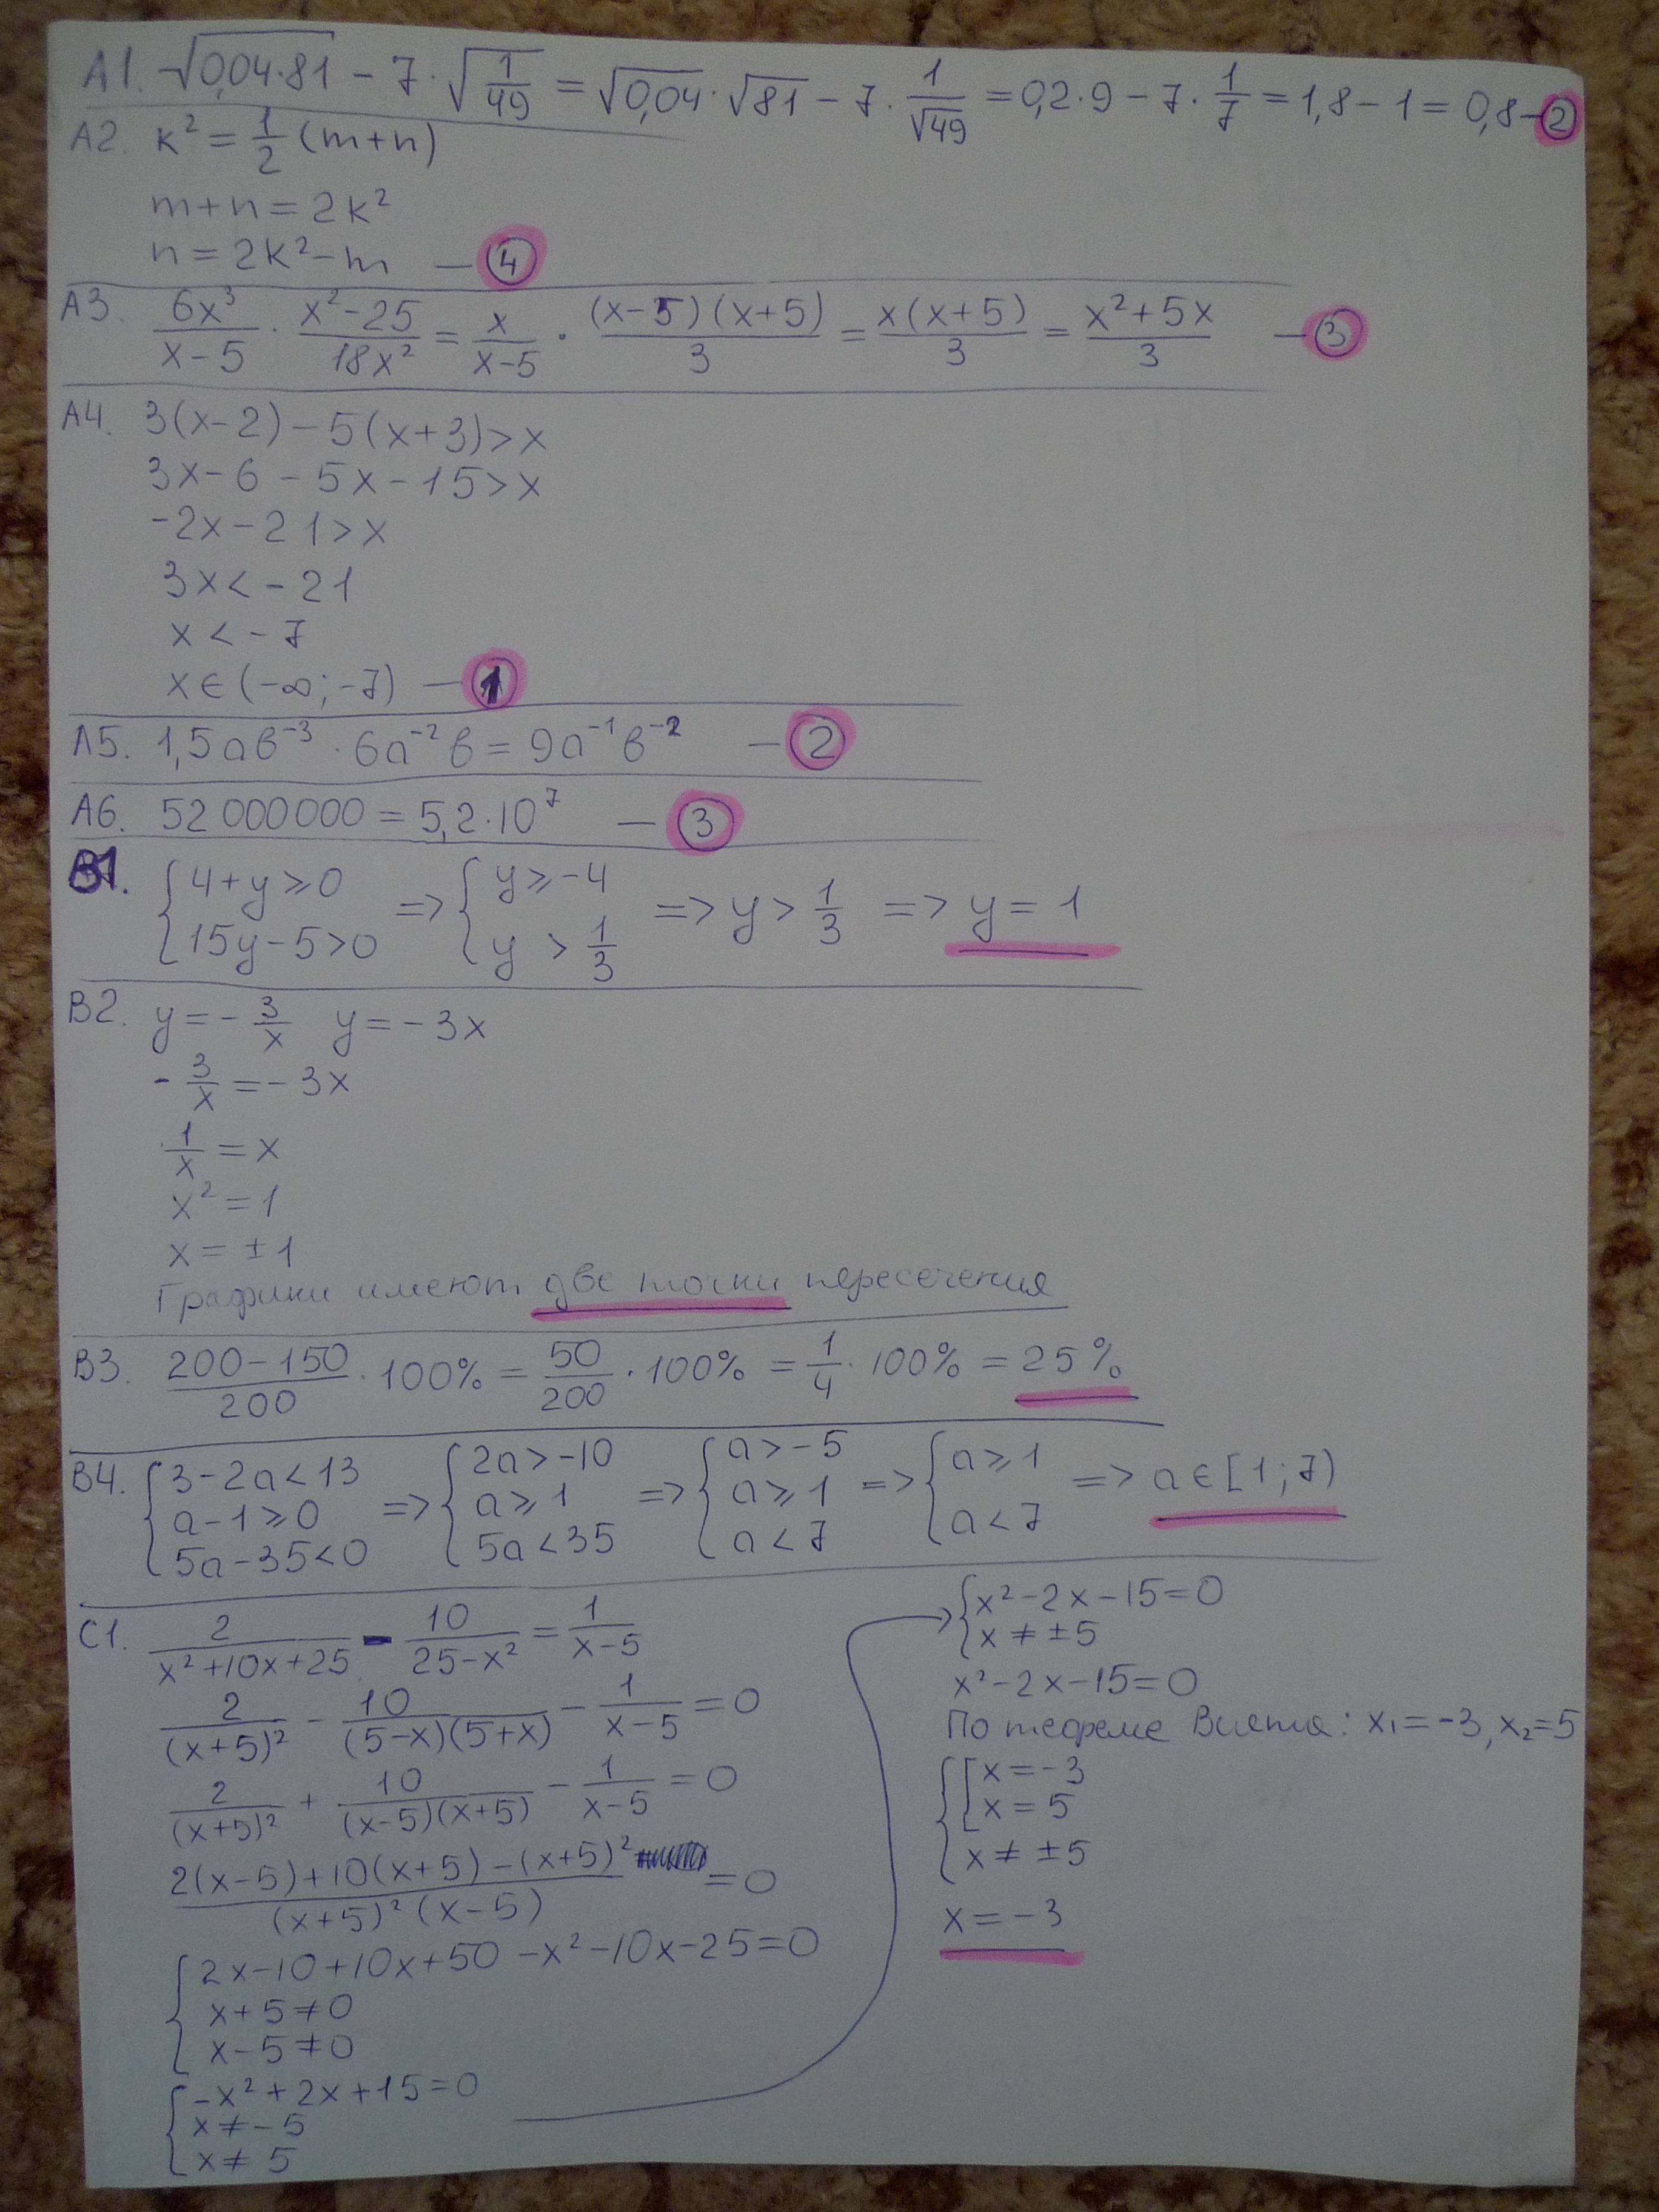 A1. √(0,04·81) − 7·√(1/49) = √0,04·√81 − 7·1/√49 = 0,2·9 − 7·1/7 = 1,8−1 = 0,8 − 2
A2. k² = 1/2 (m+n)
m+n = 2k²
n = 2k²−m — 4
A3. 6x³/(x−5) · (x²−25)/18x² = x/(x−5) · (x−5)(x+5)/3 = x(x+5)/3 = (x²+5x)/3 — 3
A4. 3(x−2) − 5(x+3) > x
3x−6 − 5x−15 > x
−2x−21 > x
3x < −21
x < −7
x ∈ (−∞; −7) — 1
A5. 1,5aв⁻³ · 6a⁻²в = 9a⁻¹в⁻² — 2
A6. 52 000 000 = 5,2·10⁷ — 3
B1. {4+y ≥ 0; 15y−5 > 0 => {y ≥ −4; y > 1/3 => y > 1/3 => y = 1
B2. y = −3/x y = −3x
−3/x = −3x
1/x = x
x² = 1
x = ±1
Графики имеют две точки пересечения
B3. (200−150)/200 · 100% = 50/200 · 100% = 1/4 · 100% = 25%
B4. {3−2a < 13; a−1 ≥ 0; 5a−35 < 0 => {2a > −10; a ≥ 1; 5a < 35 => {a > −5; a ≥ 1; a < 7 => {a ≥ 1; a < 7 => a ∈ [1; 7)
C1. 2/(x²+10x+25) − 10/(25−x²) = 1/(x−5)
2/(x+5)² − 10/((5−x)(5+x)) − 1/(x−5) = 0
2/(x+5)² + 10/((x−5)(x+5)) − 1/(x−5) = 0
(2(x−5)+10(x+5)−(x+5)²)/((x+5)²(x−5)) = 0
{2x−10+10x+50−x²−10x−25=0
x+5≠0
x−5≠0
{−x²+2x+15=0
x≠−5
x≠5
{x²−2x−15=0
x≠±5
x²−2x−15=0
По теореме Виета: x₁=−3, x₂=5
{[x=−3
x=5
x≠±5
x=−3